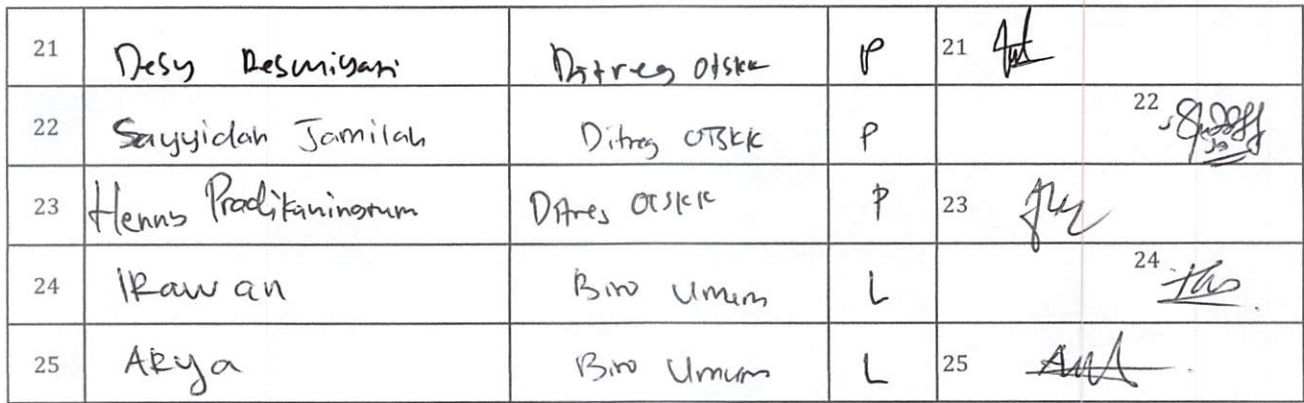 21 Desy Resmiyani Ditreg OTSKK P 21
22 Sayyidah Jamilah Ditreg OTSKK P 22
23 Henny Pradikaningrum Ditreg OTSKK P 23
24 IRawan Biro Umum L 24
25 ARya Biro Umum L 25